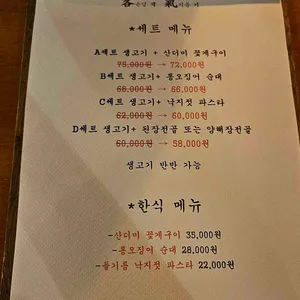 客손님 객 氣기운 기
*세트 메뉴
A세트 생고기+ 산더미 꽃게구이
75,000원 → 72,000원
B세트 생고기+ 통오징어 순대
68,000원 → 66,000원
C세트 생고기+ 낙지젓 파스타
62,000원 → 60,000원
D세트 생고기+ 된장전골 또는 양해장전골
60,000원 → 58,000원
생고기 반반 가능
*한식 메뉴
-산더미 꽃게구이 35,000원
-통오징어 순대 28,000원
-들기름 낙지젓 파스타 22,000원